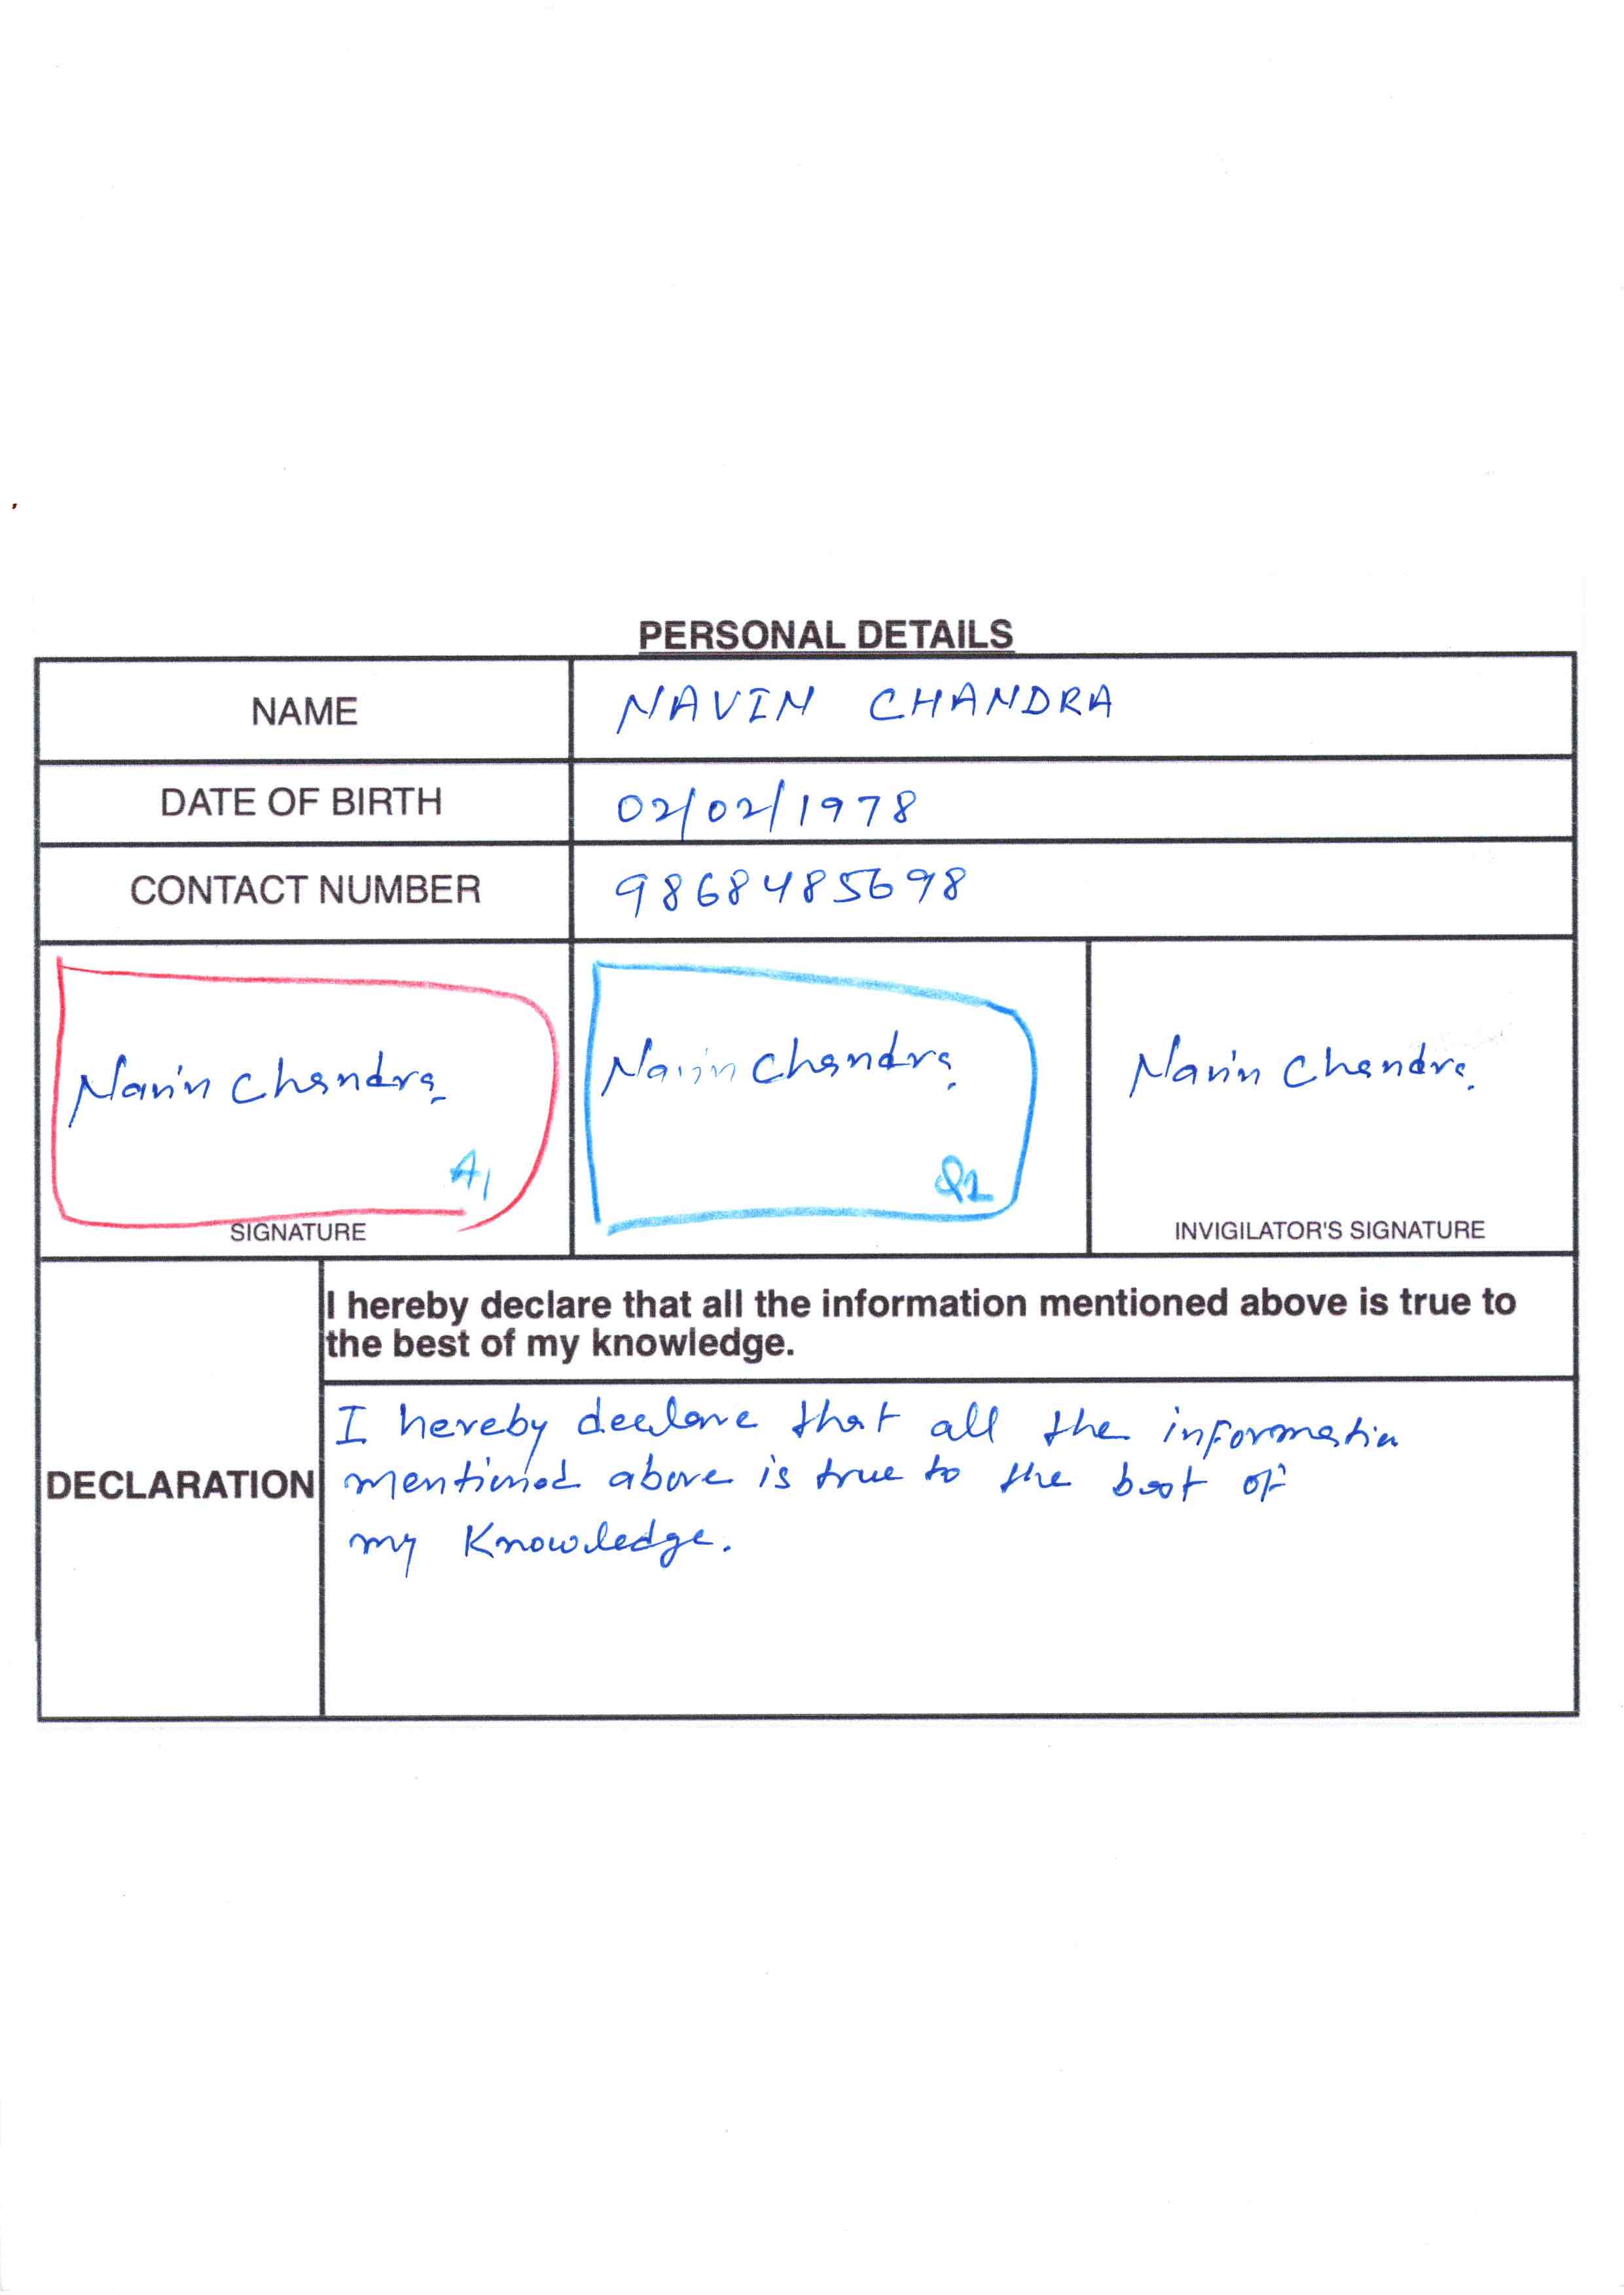 PERSONAL DETAILS
NAME NAVIN CHANDRA
DATE OF BIRTH 02/02/1978
CONTACT NUMBER 9868485698
Navin Chandra
A1
SIGNATURE
Navin Chandra
Q1
Navin Chandra
INVIGILATOR'S SIGNATURE
DECLARATION
I hereby declare that all the information mentioned above is true to
the best of my knowledge.
I hereby declare that all the information
mentioned above is true to the best of
my Knowledge.